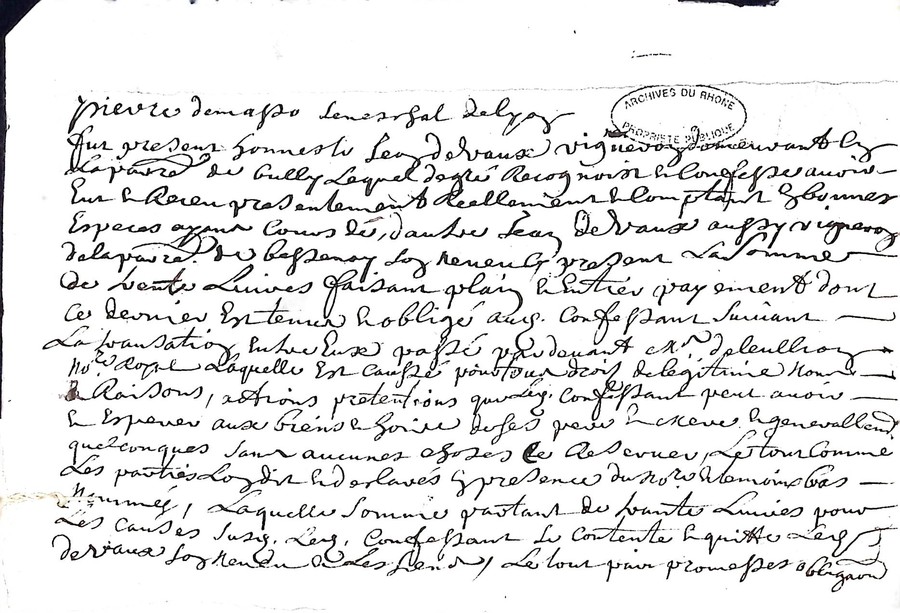 pierre demasso seneschal de lyon
ARCHIVES DU RHONE
PROPRIETE PUBLIQUE
fut present honneste Jean devaux vigneron demeurant en
la parre de bully Lequel de gré Recognoist et Confesse avoir
Eut et Receu presentement Reellement et Comptant En bonnes
Especes ayant Cours de, d'autre Jean devaux aussy vigneron
de la parre. de bessenay son neveu Cy present La Somme
de trente Livres faisant plain et Entier payement dont
Ce dernier Est tenu et obligé aud. Confessant Suivant
La transation Entre Eux passé pardevant Mr. 
No.re Royal Laquelle Est Causée pour tous droit de legitime
Raisons, actions pretentions que Led. Confessant peut avoir
et Esperer aux biens et hoirie de ses pere et mere et generallem.t
quelconques sans aucunes choses se Reserver, Le tout Comme
Les parties L'ont dit et declaré En presence du No.re et temoins bas
Nommés, Laquelle Somme partant de trante Livres pour
Les Causes Susd. Led. Confessant Se Contente et quitte Led.
devaux son neveu et Les Siens, Le tout par promesses obligaon